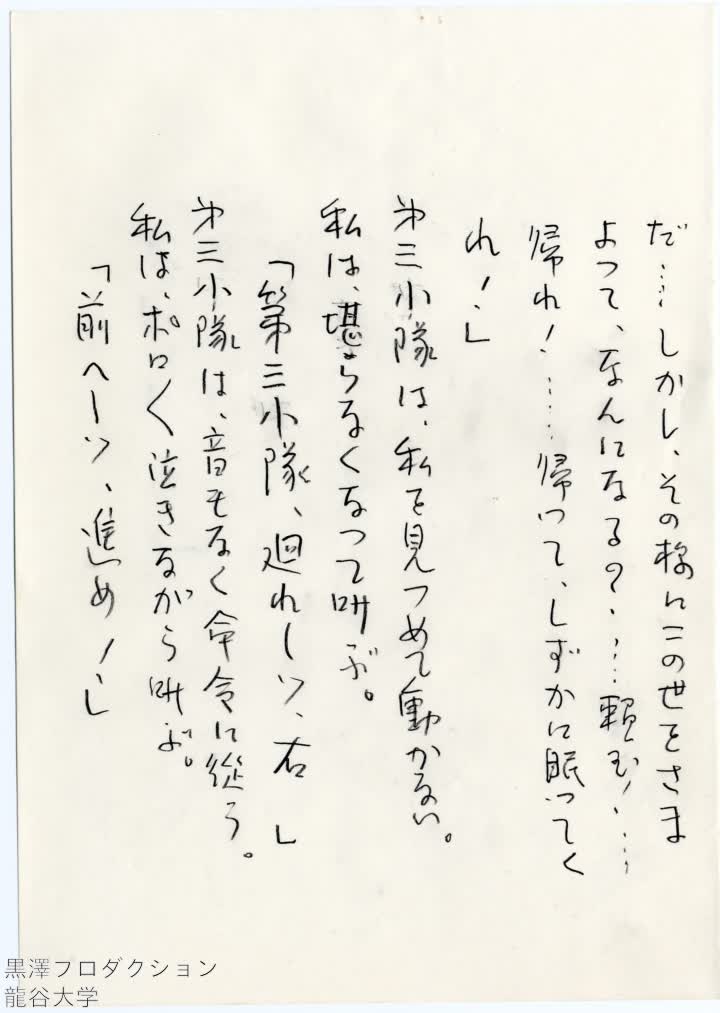 だ……しかし、その様にこの世をさま
よって、なんになる？……頼む！……
帰れ！……帰って、しずかに眠ってく
れ！」
第三小隊は、私を見つめて動かない。
私は、堪らなくなって叫ぶ。
「第三小隊、廻れーッ、右　」
第三小隊は、音もなく命令に従う。
私は、ポロ〱泣きながら叫ぶ。
「前へーッ、進め！」
黒澤プロダクション
龍谷大学